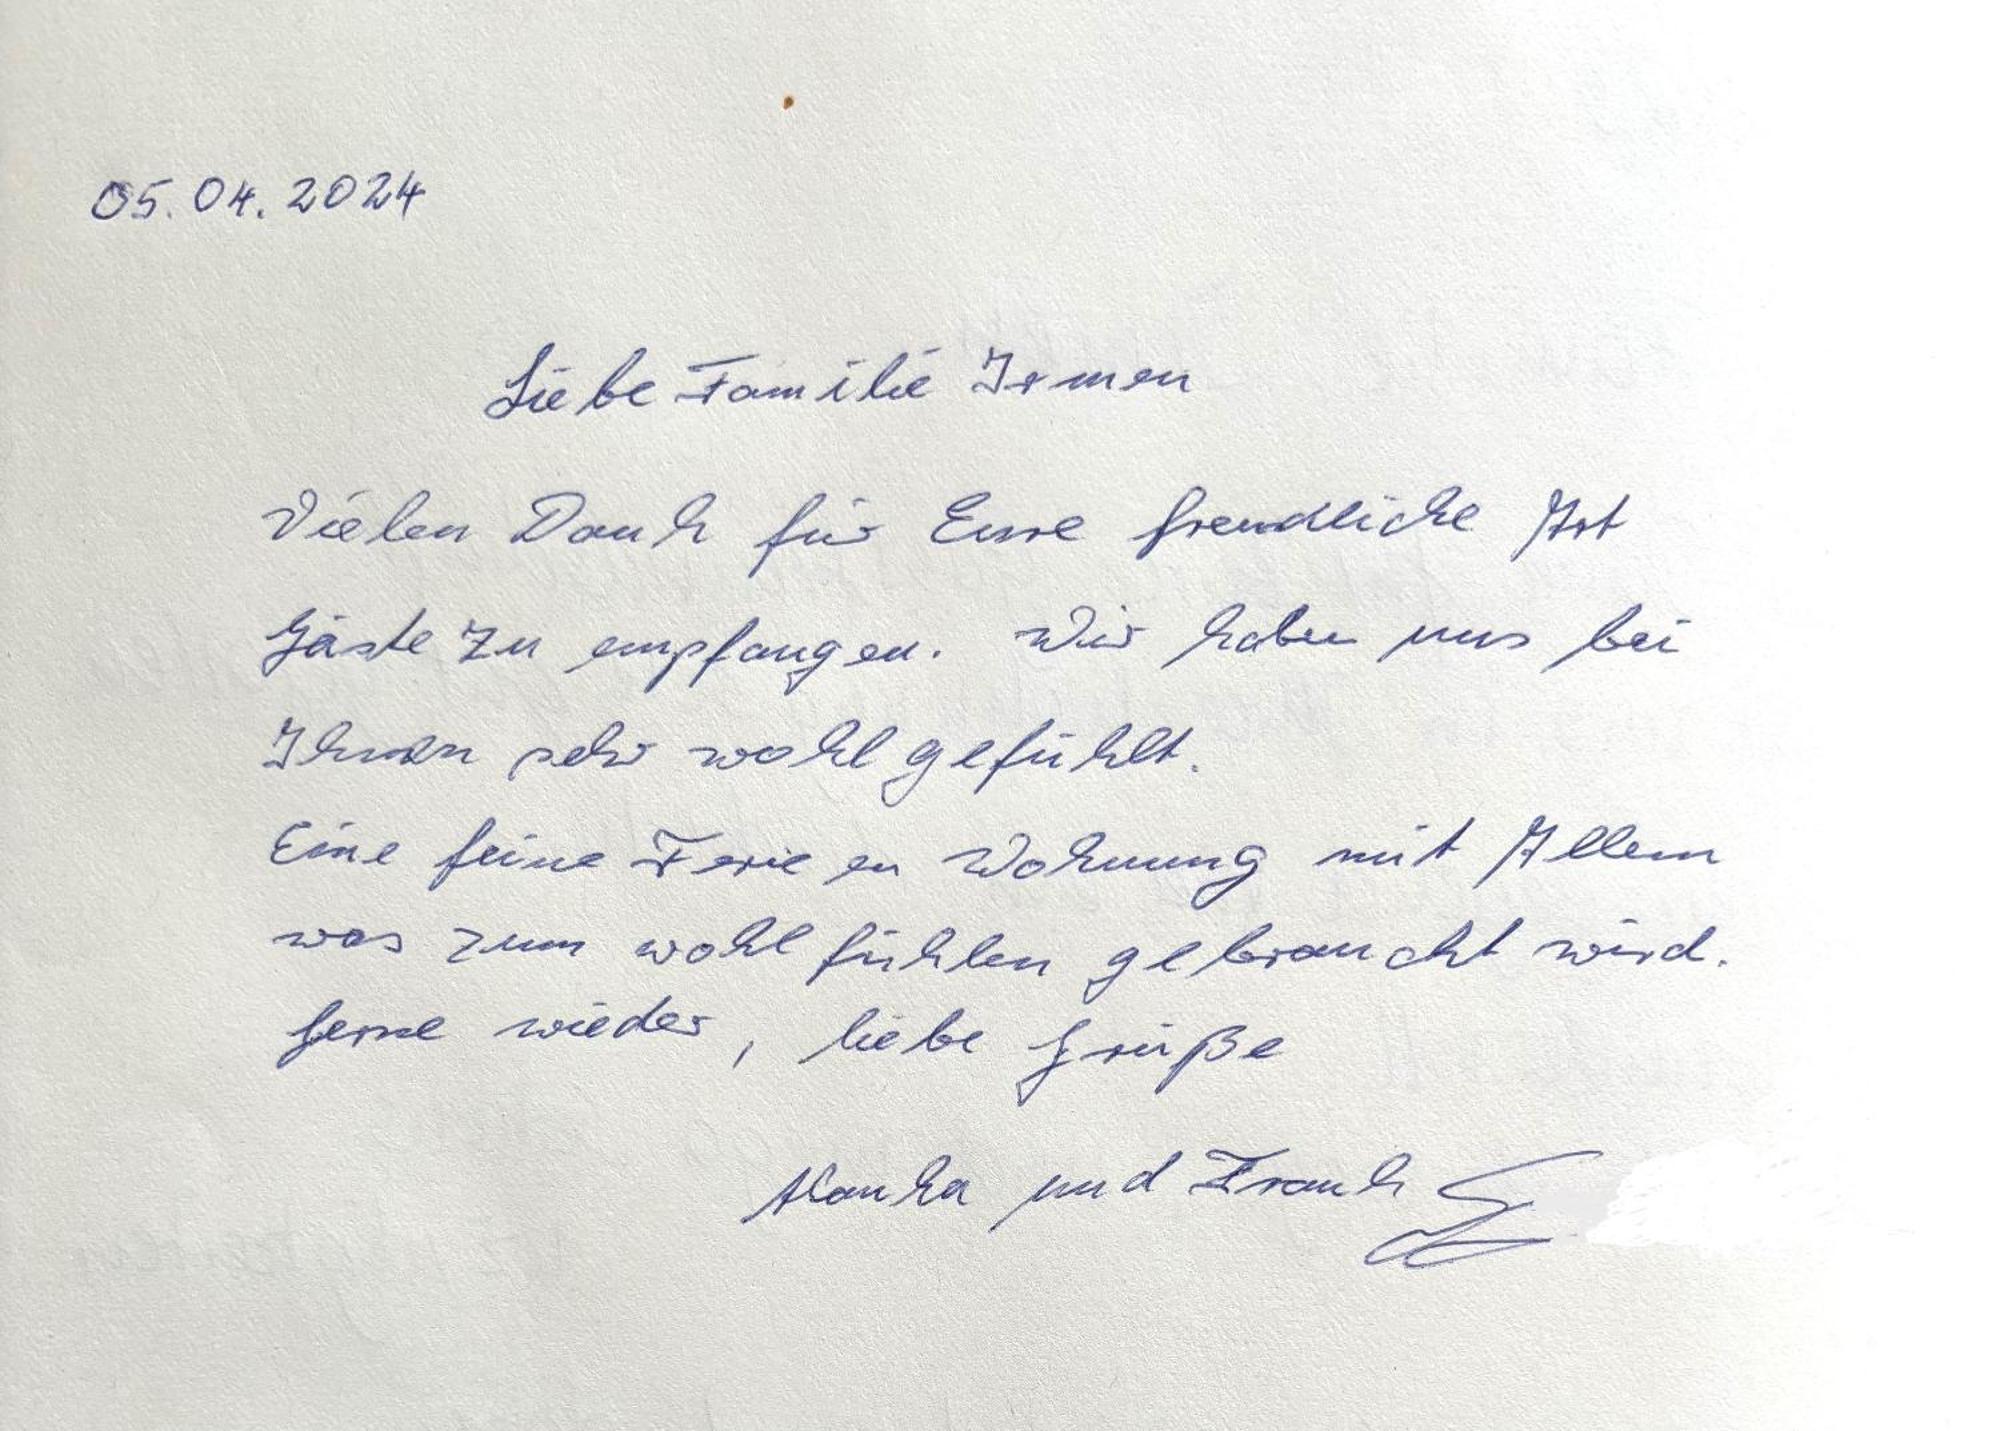 05.04.2024
Liebe Familie Irmen
Vielen Dank für Eure freundliche Art
Gäste zu empfangen. Wir haben uns bei
Ihnen sehr wohl gefühlt.
Eine feine Ferien Wohnung mit Allem
was zum wohl fühlen gebraucht wird.
Gerne wieder, liebe Grüße
und Frank